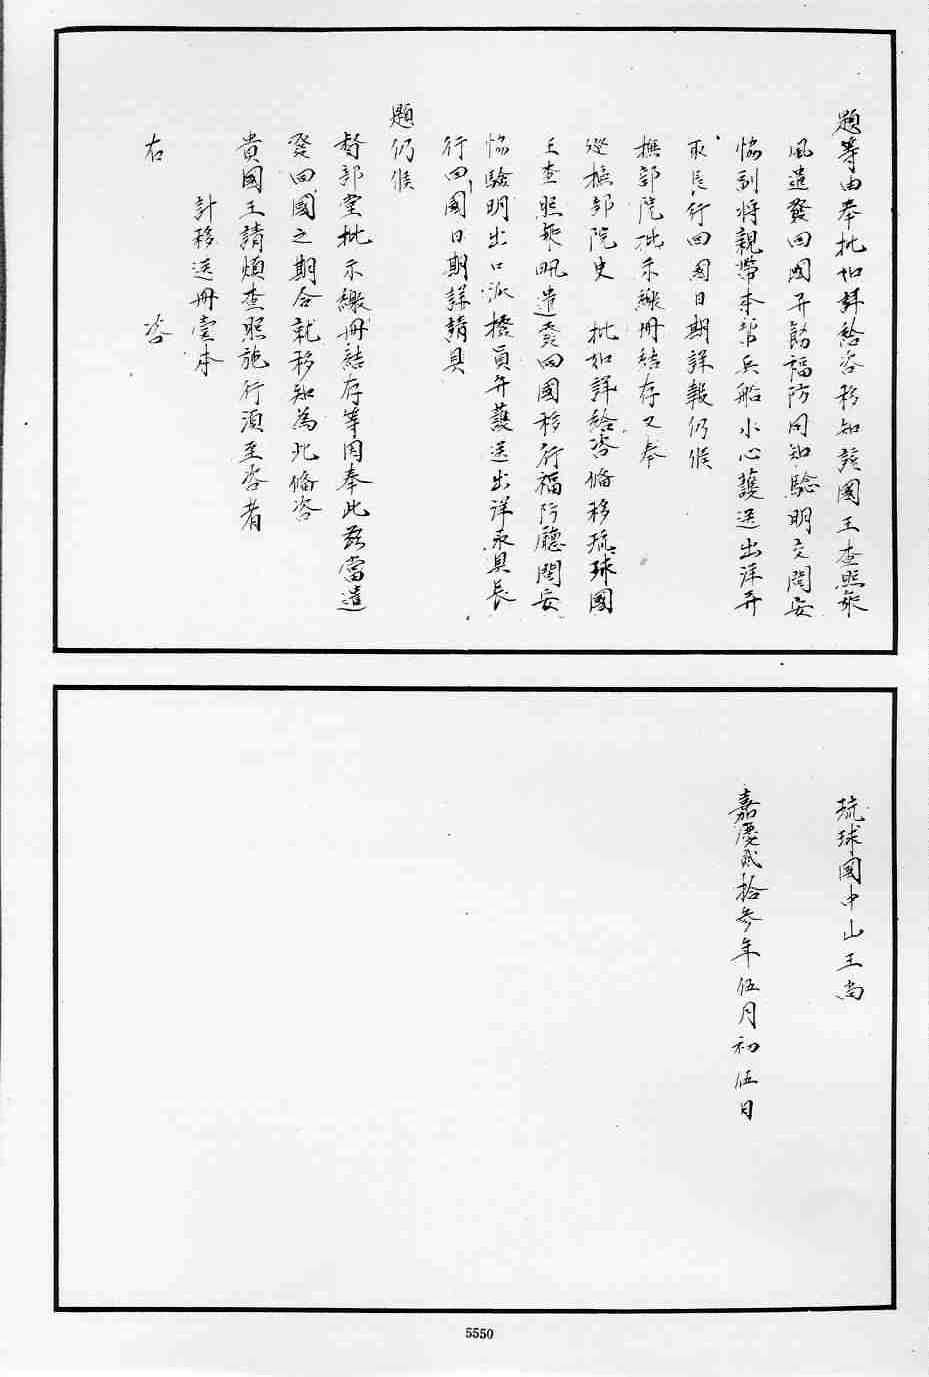 題等由奉批如詳給咨移知該國王查照乘
風遣發回國并飭福防同知驗明交閩安
協副將親帶本幇兵船小心護送出洋并
取長行回國日期詳報仍候
撫部院批示繳冊結存又奉
巡撫部院史　批如詳給咨備移琉球國
王查照乘帆遣發回國移行福防廳閩安
協驗明出口派撥員弁護送出洋取具長
行回國日期詳請具
題仍候
督部堂批示繳冊結存等因奉此茲當遣
發回國之期合就移知為此備咨
貴國王請煩查照施行湏至咨者
計移送冊壹本
右　咨
琉球國中山王尚
嘉慶貳拾參年伍月初伍日
5550